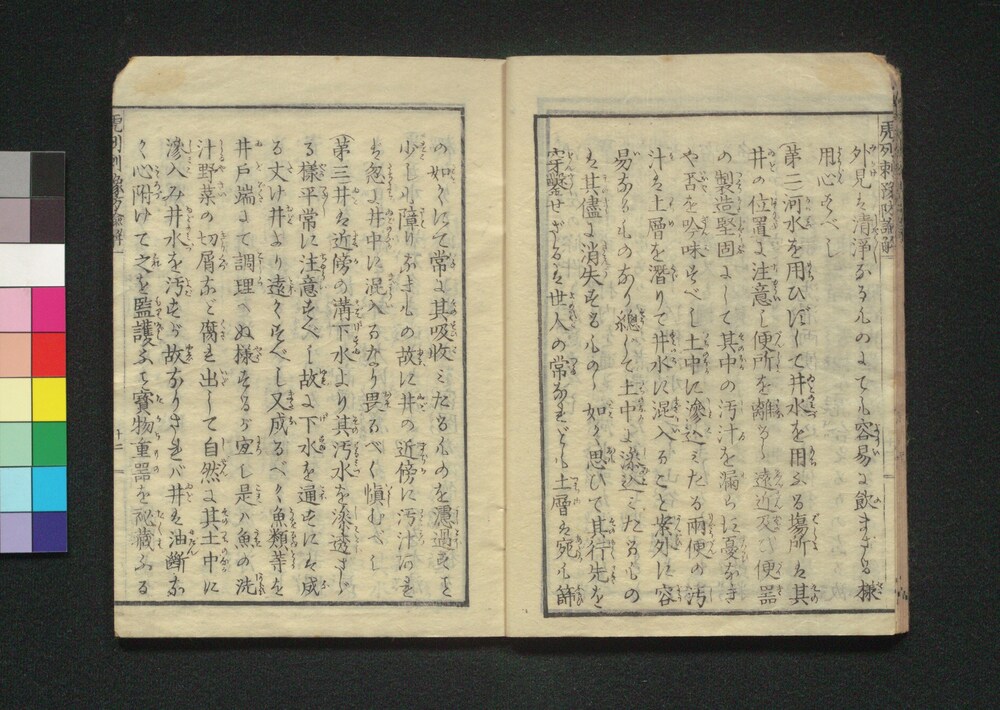 外見は清浄なるものにても容易に飲まざる様
用心すべし
(第二)河水を用ひずして井水を用ゐる場所は其
井の位置に注意し便所を離るゝ遠近及び便器
の製造堅固にして其中の汚汁を漏らす憂なき
や否を吟味すべし土中に滲込みたる両便の汚
汁は上層を潜りて井水に混入ること案外に容
易なるものなり総じて土中に滲込みたるもの
は其儘に消失するものゝ如く思ひて其行先を
穿鑿せざるは世人の常なれども土層は宛も篩
の如くにて常に其吸收みたるものを濾過すこと
少しも障りなきもの故に井の近傍に汚汁あれ
ば忽に井中に混入るなり畏るべく慎むべし
(第三)井は近傍の溝下水より其汚水を滲透さゞ
る様平常に注意すべし故に下水を通すには成
る丈け井より遠くすべし又成るべく魚類等を
井戸端にて調理へぬ様するが宜し是は魚の洗
汁野菜の切屑など腐れ出して自然に其土中に
滲入み井水を汚すが故なりされば井は油断な
く心附けて之を監護ること宝物重器を秘蔵する
十二